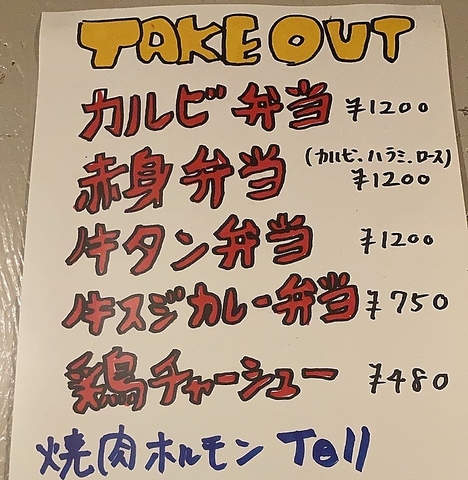 TAKE OUT
カルビ弁当 ¥1200
(カルビ、ハラミ、ロース)
赤身弁当 ¥1200
牛タン弁当 ¥1200
牛スジカレー弁当 ¥750
鶏チャーシュー ¥480
焼肉ホルモン Tell